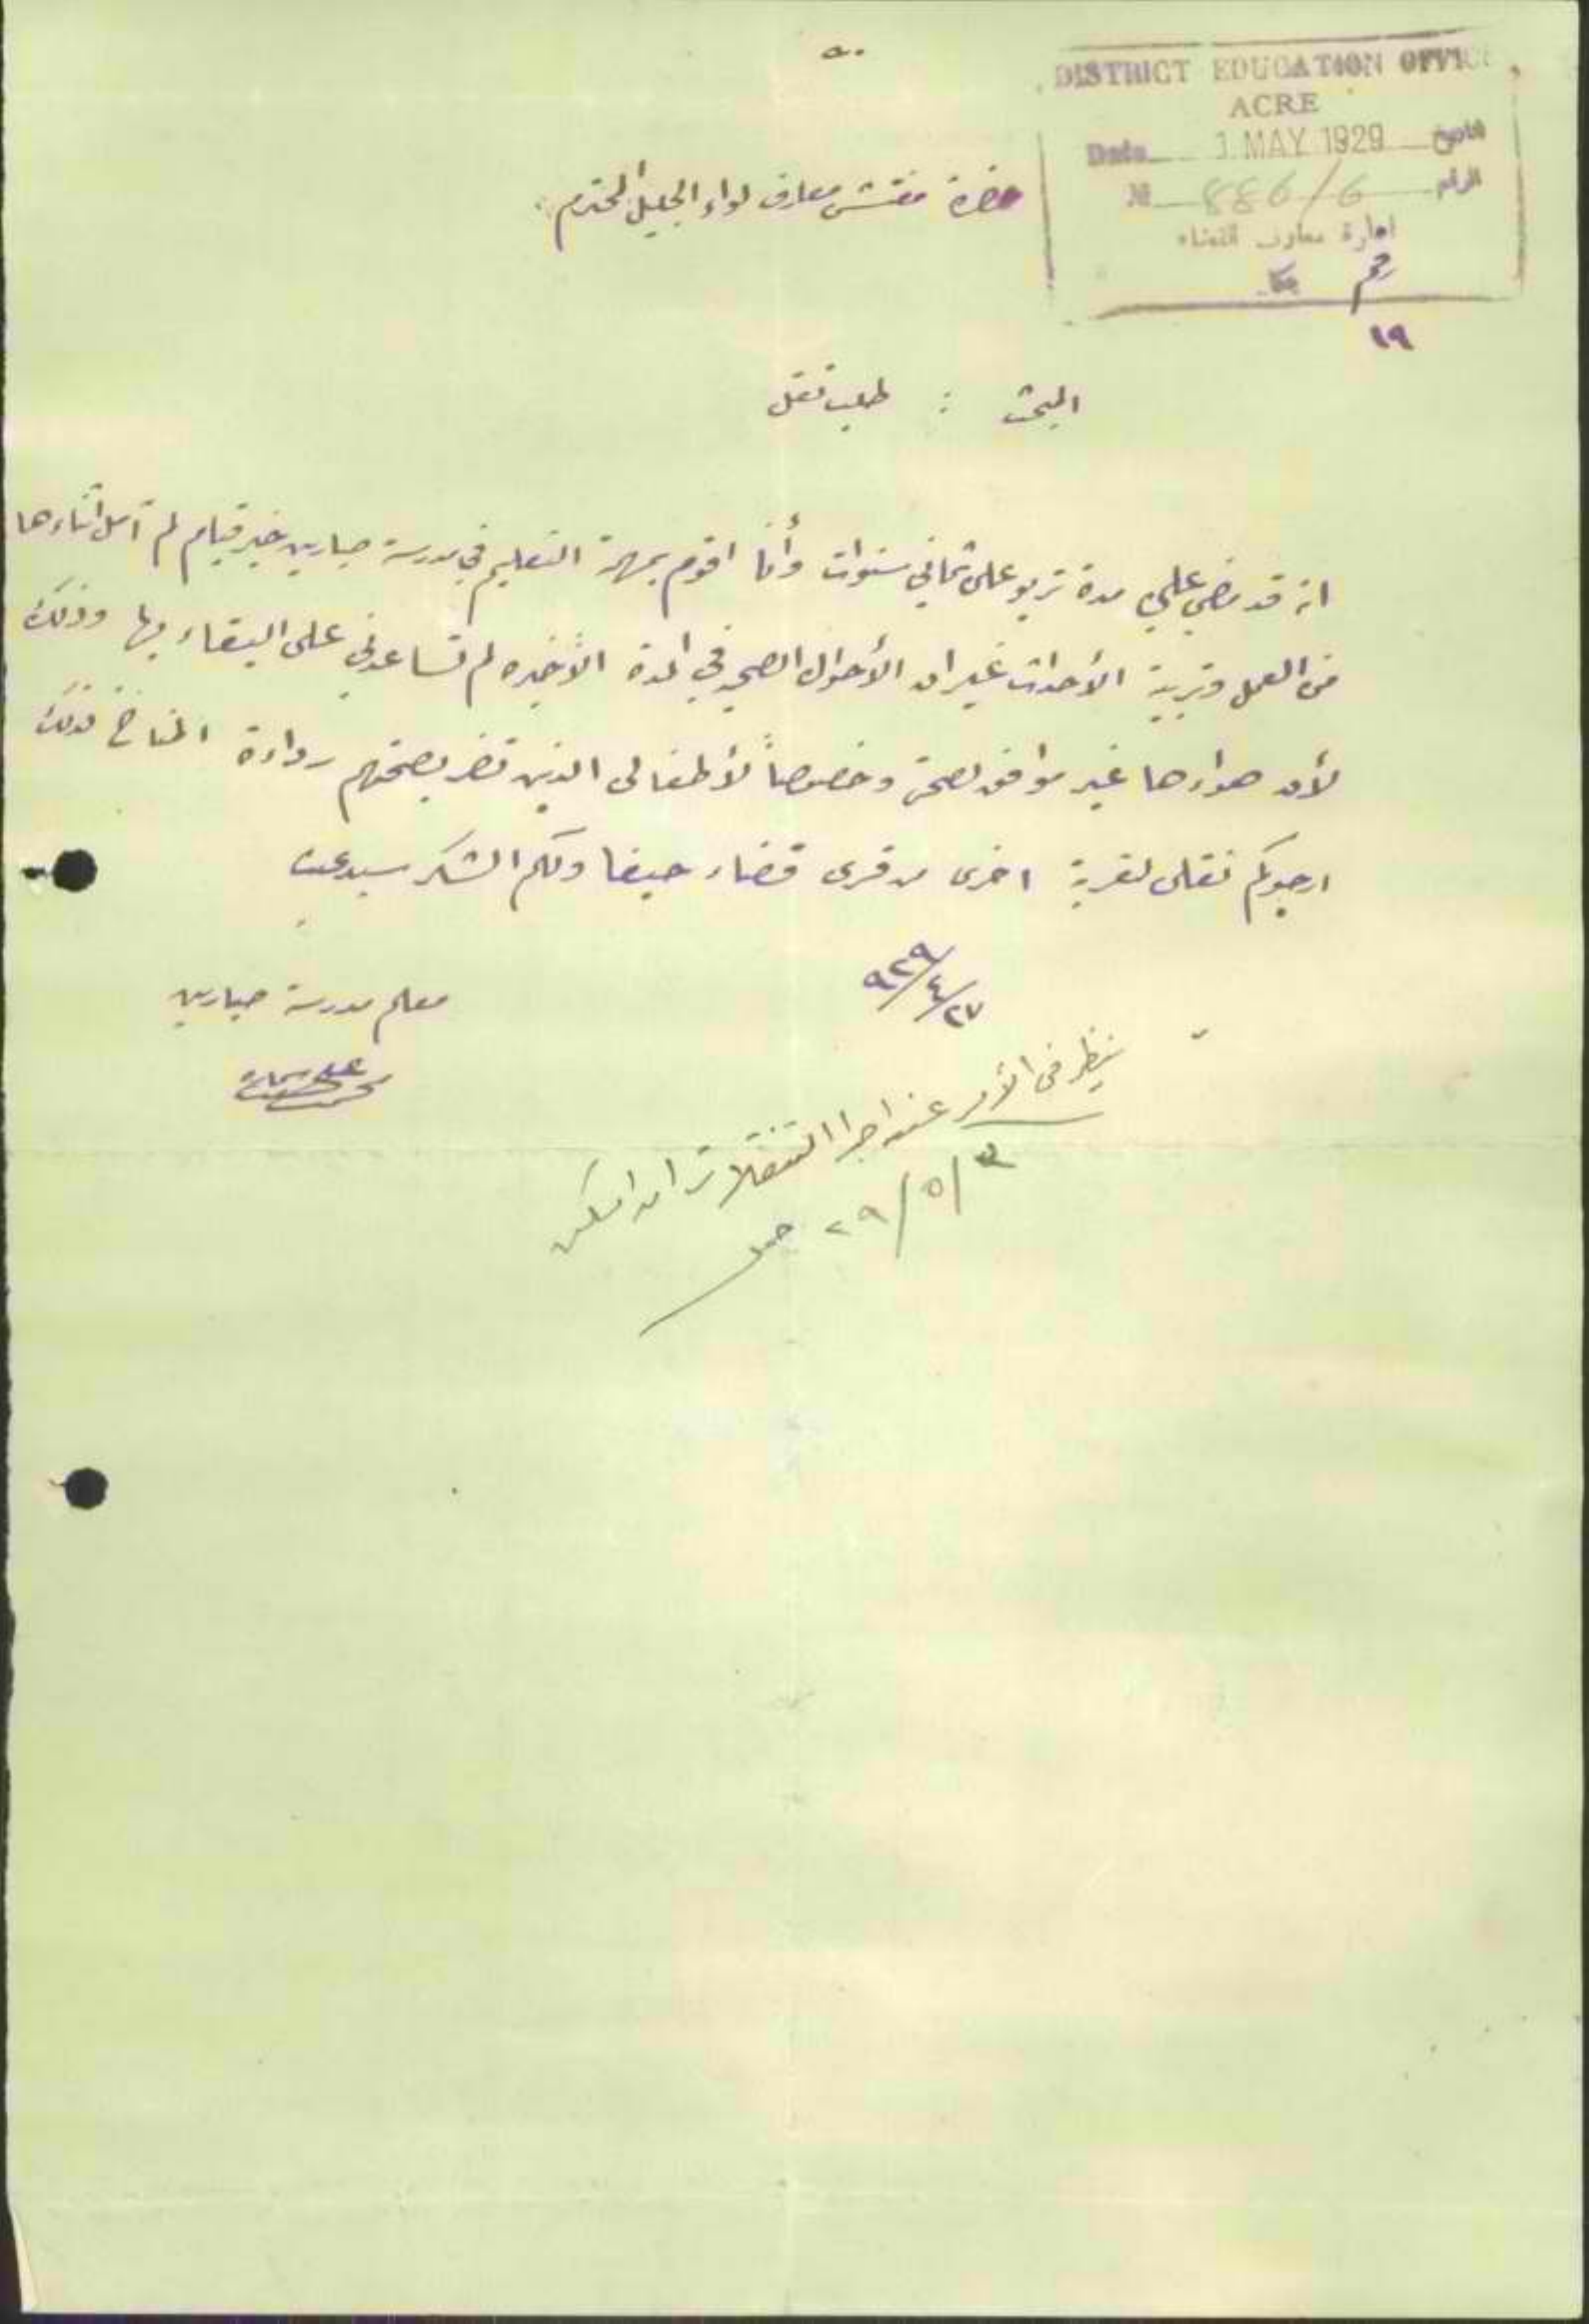 ٥٠
DISTRICT EDUCATION OFFICE
ACRE
Date 1 MAY 1929 التاريخ
№ 886/6 الرقم
ادارة معارف القضاء
١٩
حضرة مفتش معارف لواء الجليل المحترم
البحث : طلب نقل
انه قد مضى علي مدة تربو على ثماني سنوات وأنا اقوم بمهنة التعليم في مدرسة صبارين خير قيام لم آمل اثناءها
من العمل وتربية الأحداث غير ان الأحوال الصحيه في المدة الأخيره لم تساعدني على البقاء بها وذلك
لأن هواءها غير موافق لصحتي وخصوصاً لأطفالي الذين تضر بصحتهم رداءة المناخ لذلك
ارجوكم نقلي لقرية اخرى من قرى قضاء حيفا ولكم الشكر سيدي
٩٢٩/٤/٢٧
معلم مدرسة صبارين
ينظر في الأمر عند اجرا التنقلات ان امكن
٢٩/٥/٢